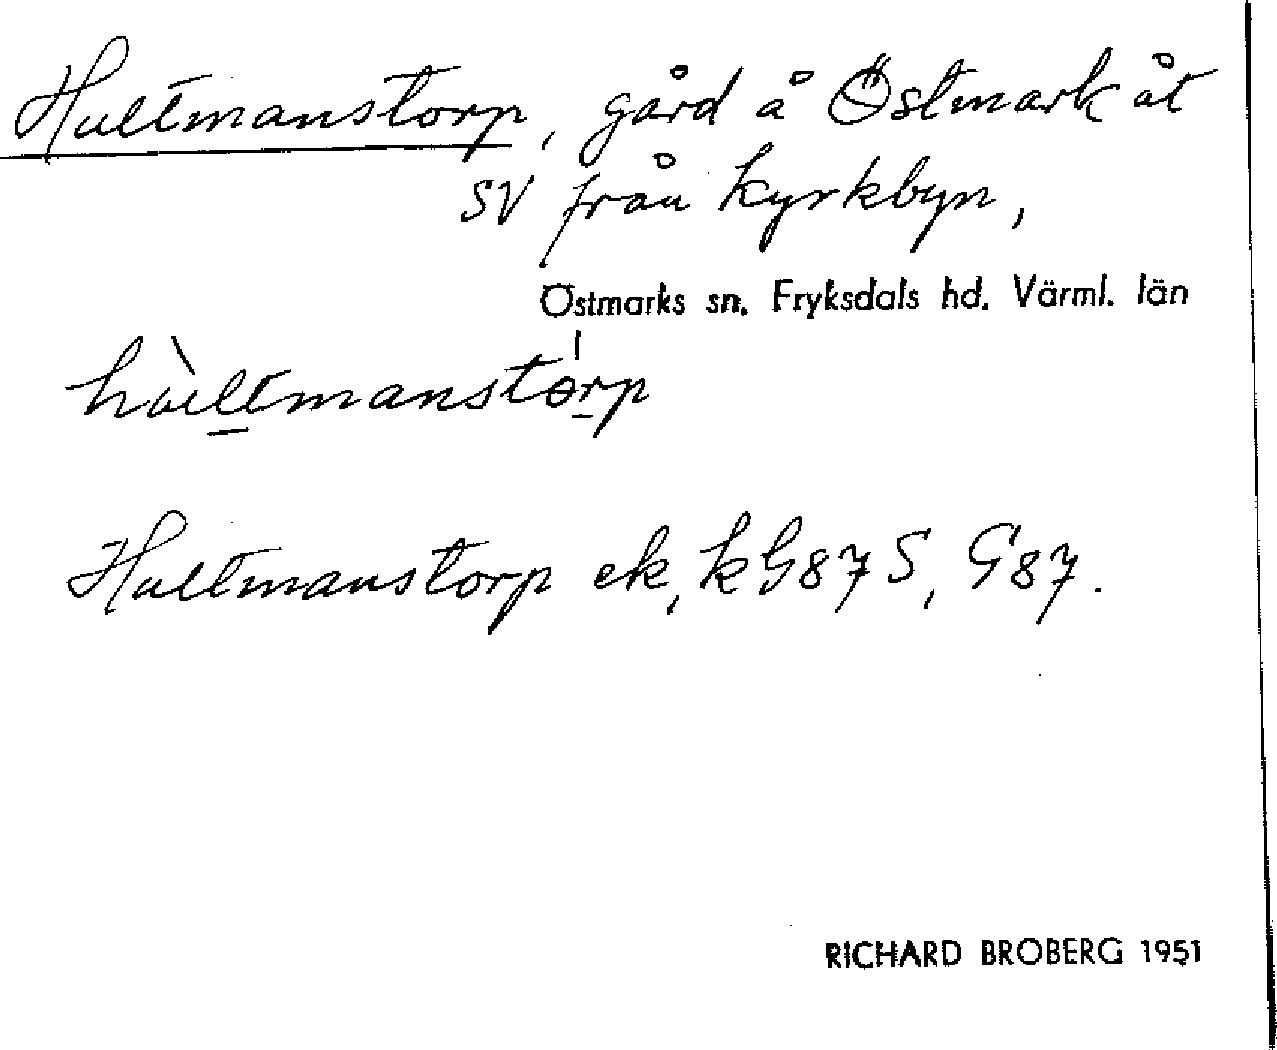 Hultmanstorp, gård å Östmark åt
SV från kyrkbyn,
Östmarks sn. Fryksdals hd. Värml. län
Hultmanstorp ek, kG87S, G87.
RICHARD BROBERG 1951